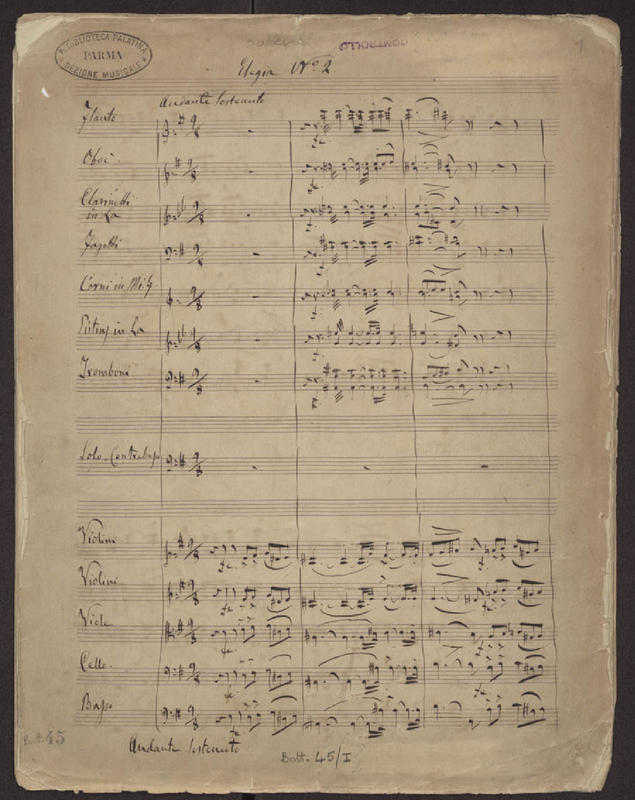 R. BIBLIOTECA PALATINA
PARMA
SEZIONE MUSICALE
CONTROLLO
1
Elegia No 2.
Andante Sostenuto
Flauto
Oboi
Clarinetti
in La
Fagotti
Corni in Mi
in La
Tromboni
Solo Contrabasso
Violini
Violini
Viole
Cello.
Basso
Andante Sostenuto
Bott. 45
Bott. 45/I